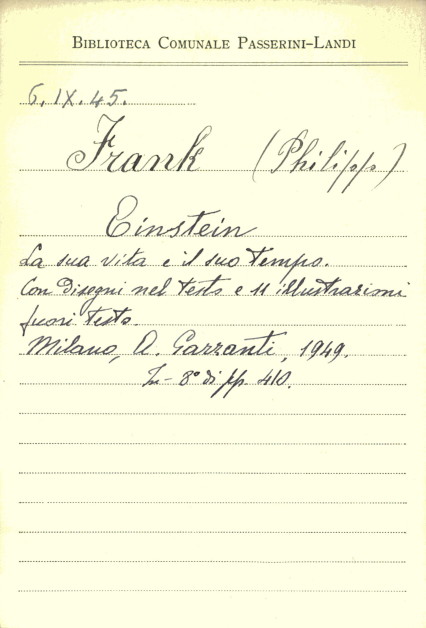 BIBLIOTECA COMUNALE PASSERINI-LANDI
6.IX.45.
Frank (Philipp)
Einstein
La sua vita e il suo tempo.
Con disegni nel testo e 11 illustrazioni
fuori testo.
Milano, A. Garzanti, 1949.
In-8° di pp. 410.